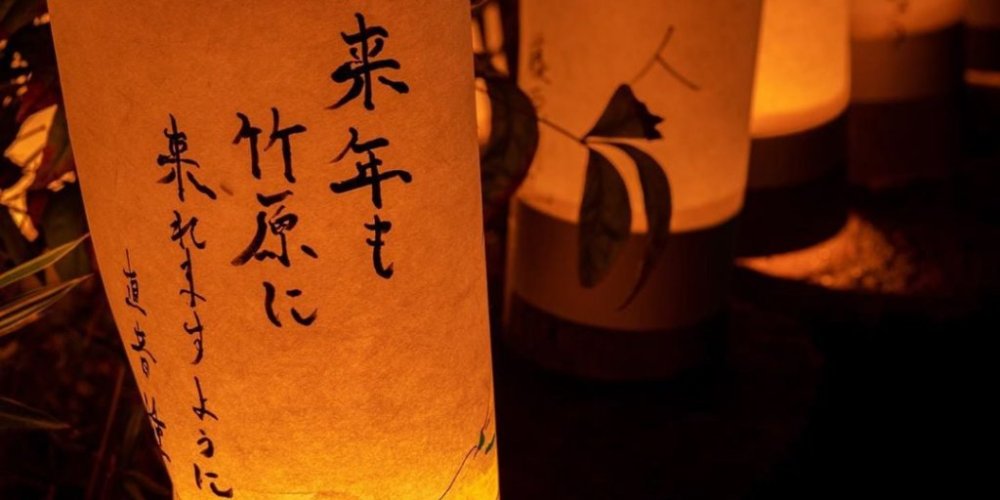 来年も
竹原に
来れますように